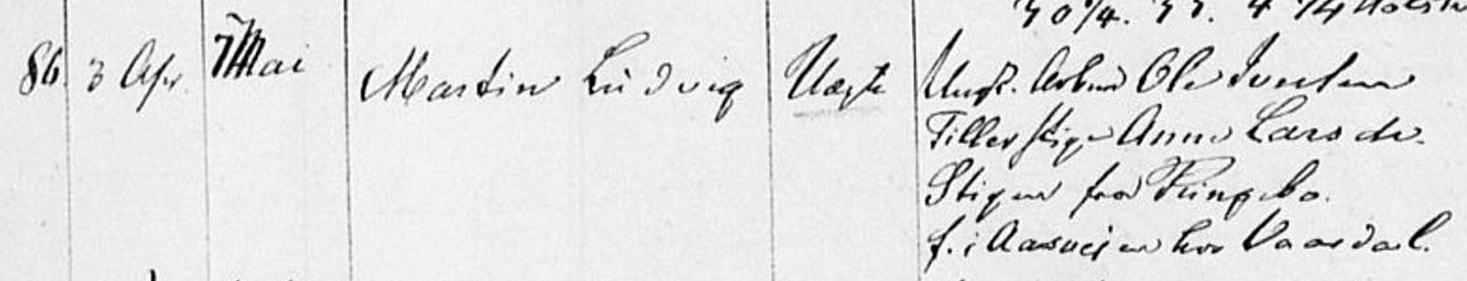 30/4.
86. 3 Apr. 7 Mai Martin Ludvig Uægte Ungk. Arbm Ole Iversen
Tillerstigen Anne Larsdr.
Stigen fra Ringebo.
f. i Aasveien hos Vaardal.